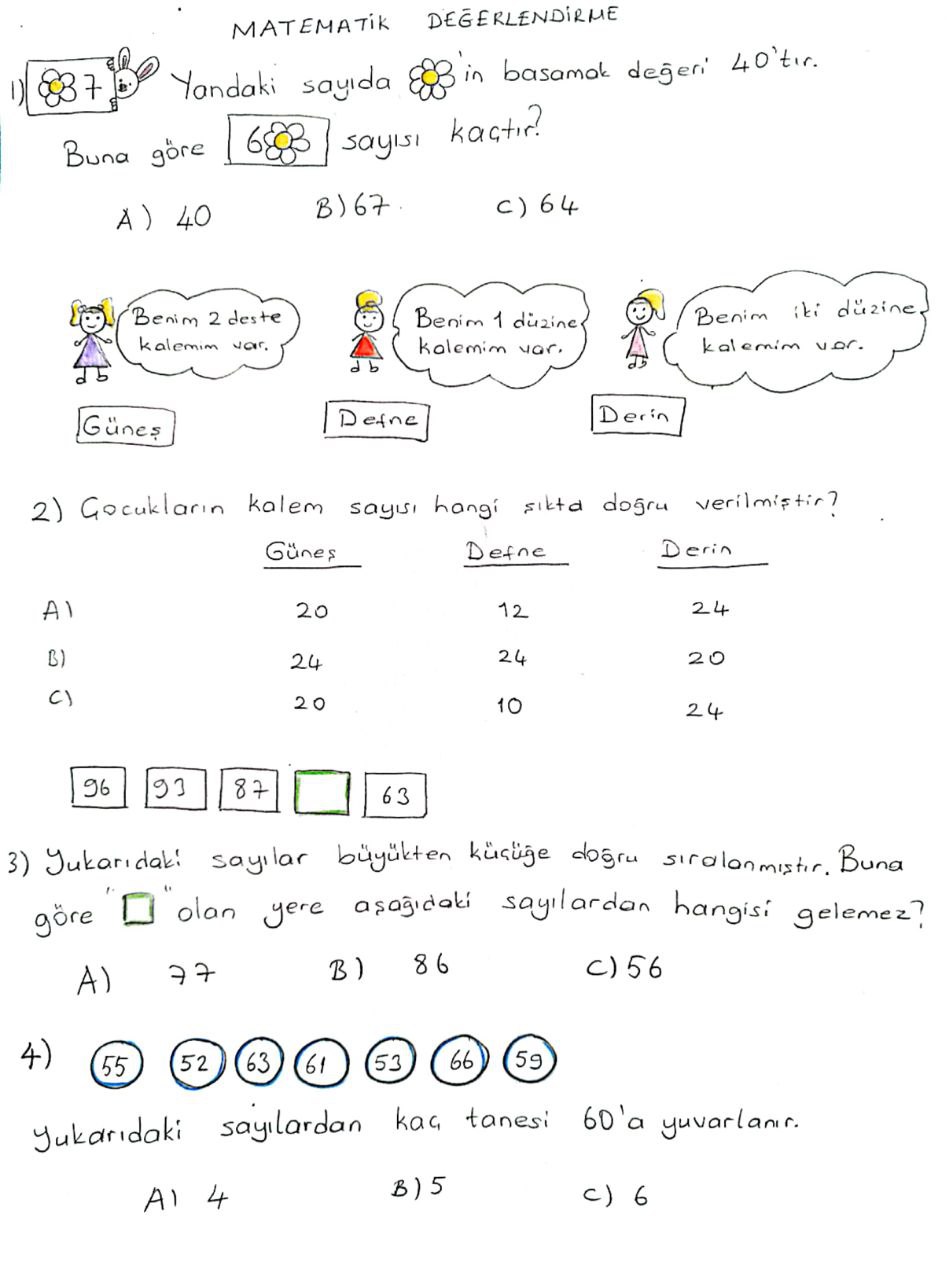 MATEMATİK DEĞERLENDİRME
1) 7 Yandaki sayıda 'in basamak değeri 40'tır.
Buna göre 6 sayısı kaçtır?
A) 40 B) 67 C) 64
Benim 2 deste
kalemim var.
Güneş
Benim 1 düzine
kalemim var.
Defne
Benim iki düzine
kalemim var.
Derin
2) Çocukların kalem sayısı hangi şıkta doğru verilmiştir?
Güneş Defne Derin
A) 20 12 24
B) 24 24 20
C) 20 10 24
96 93 87 63
3) Yukarıdaki sayılar büyükten küçüğe doğru sıralanmıştır. Buna
göre "□" olan yere aşağıdaki sayılardan hangisi gelemez?
A) 77 B) 86 C) 56
4) 55 52 63 61 53 66 59
Yukarıdaki sayılardan kaç tanesi 60'a yuvarlanır.
A) 4 B) 5 C) 6